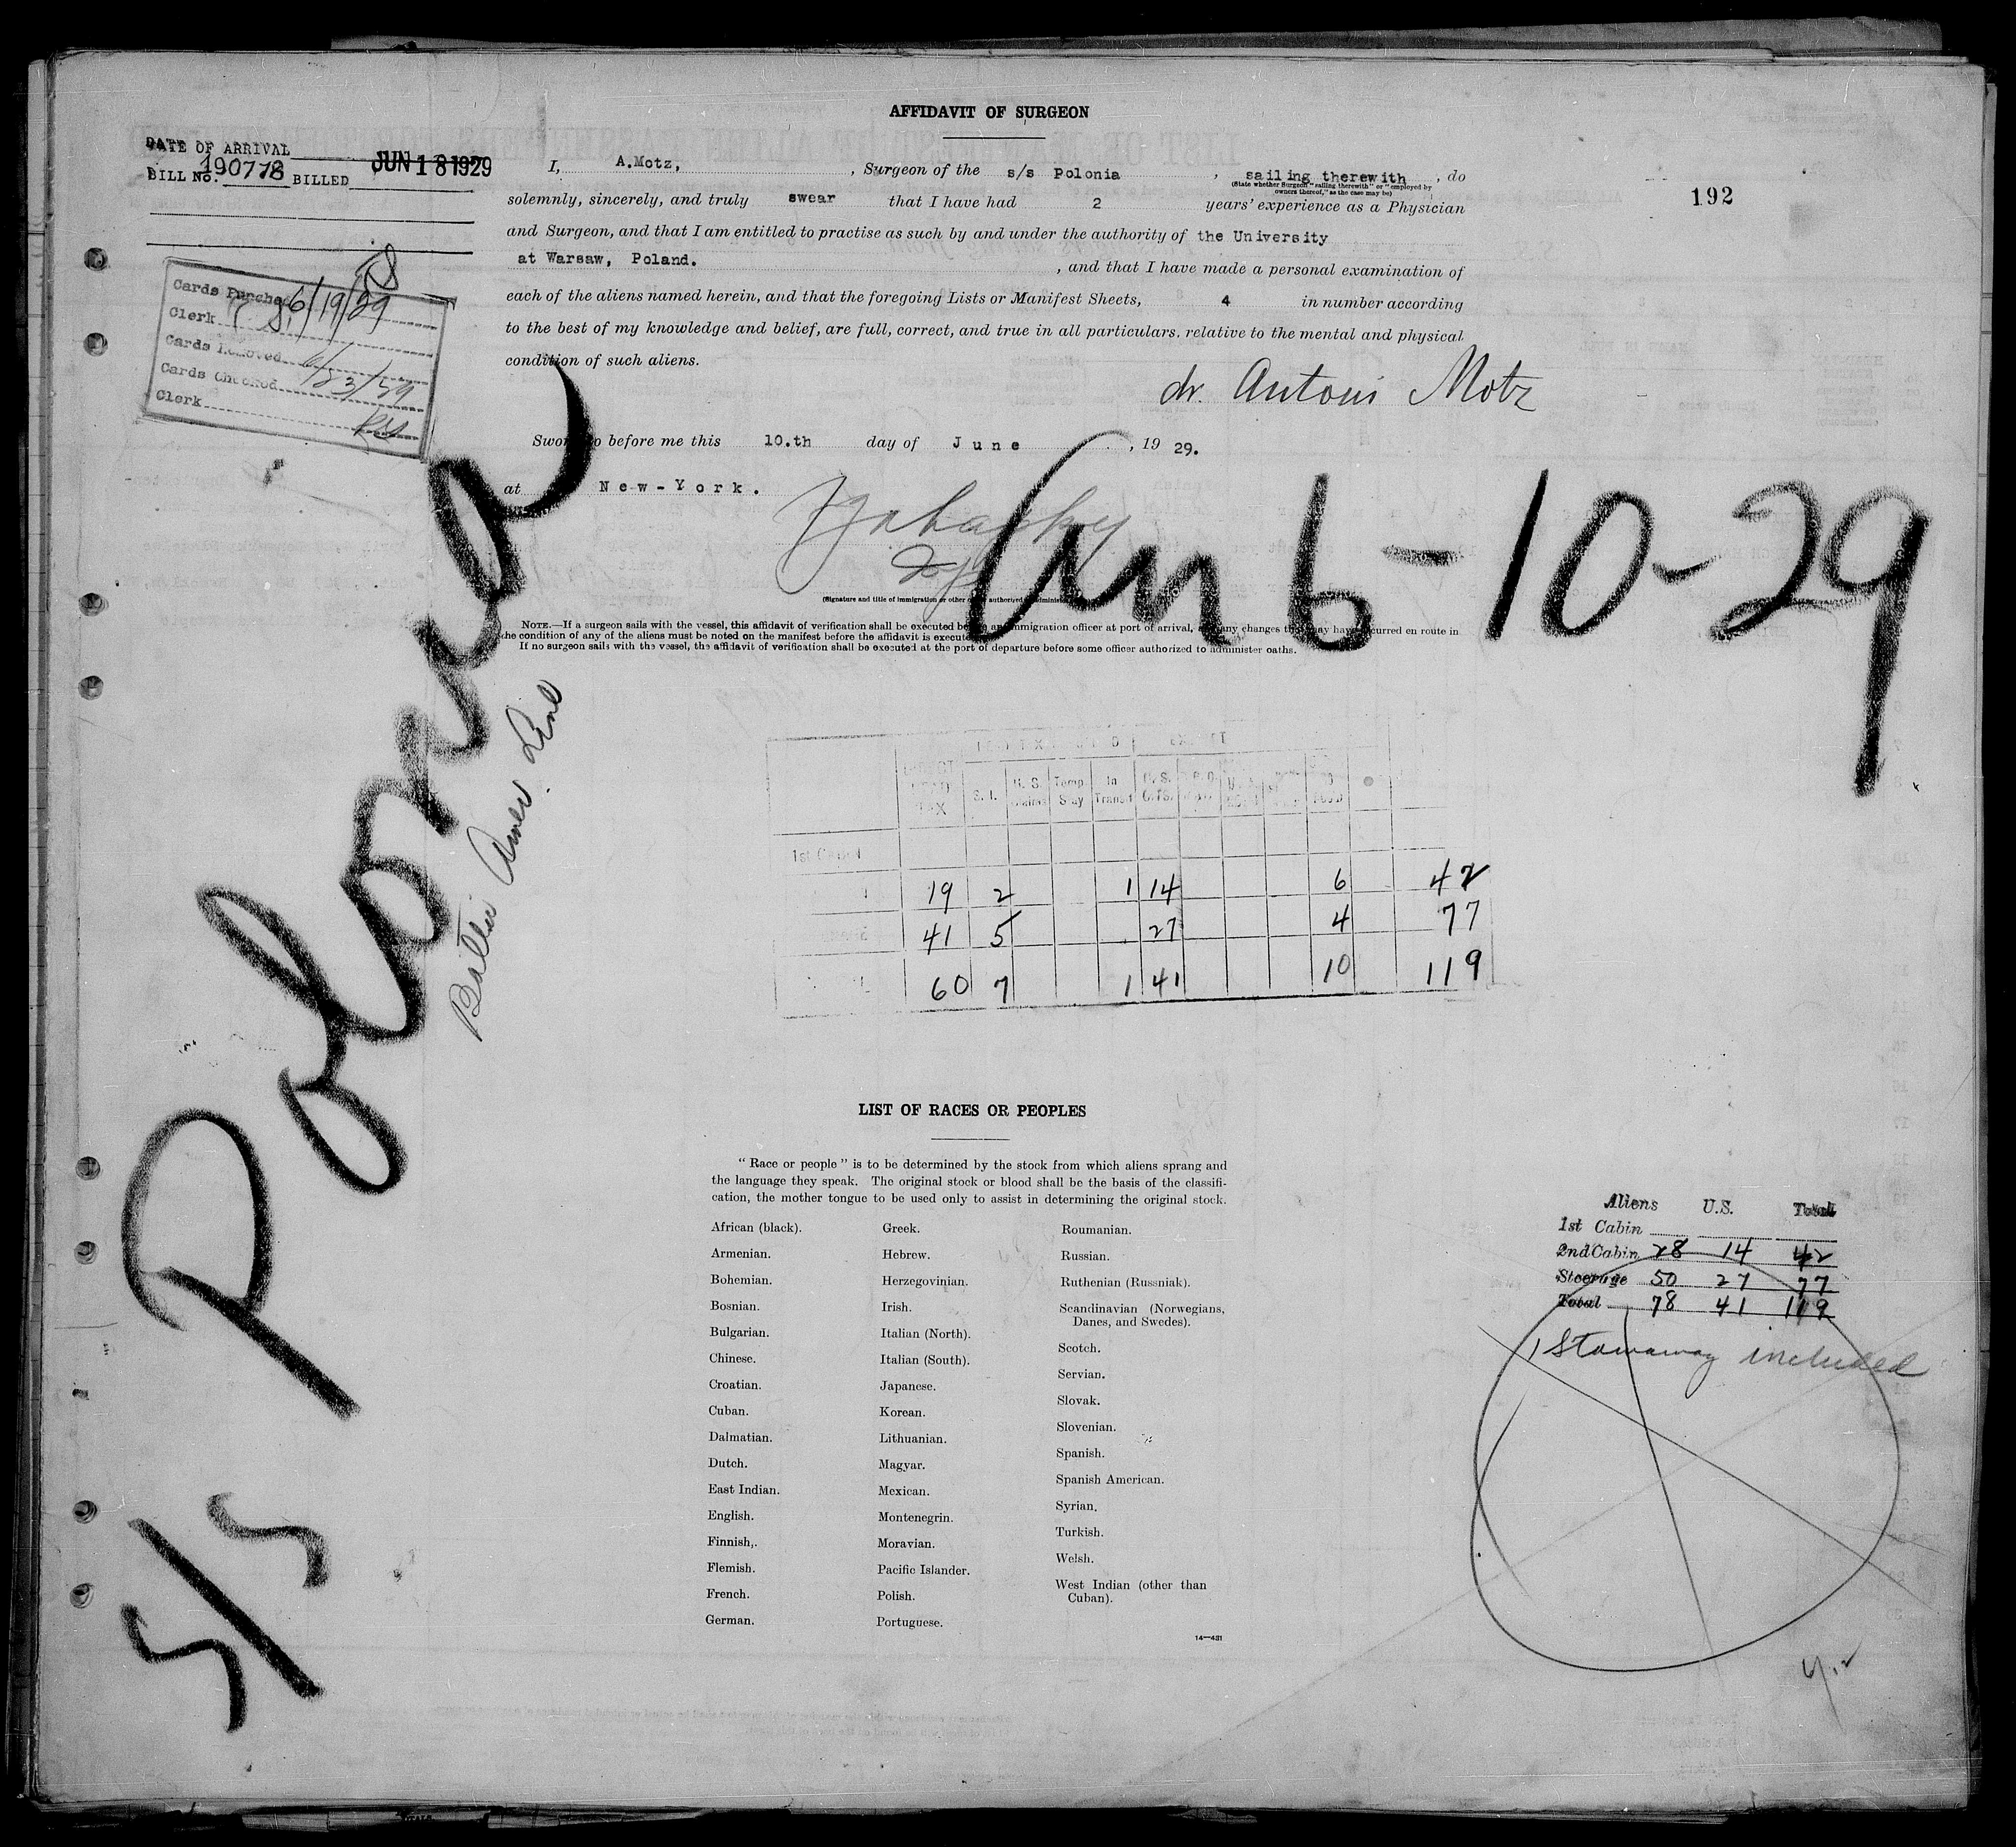 AFFIDAVIT OF SURGEON
DATE OF ARRIVAL
BILL No. 190778 BILLED JUN 18 1929
192
I, A.Motz, , Surgeon of the s/s Polonia , sailing therewith , do
(State whether Surgeon "sailing therewith" or "employed by
owners thereof," as the case may be)
solemnly, sincerely, and truly swear that I have had 2 years' experience as a Physician
and Surgeon, and that I am entitled to practise as such by and under the authority of the University
at Warsaw, Poland. , and that I have made a personal examination of
each of the aliens named herein, and that the foregoing Lists or Manifest Sheets, 4 in number according
to the best of my knowledge and belief, are full, correct, and true in all particulars. relative to the mental and physical
condition of such aliens.
dr. Antoni Motz
Sworn to before me this 10.th day of June , 19 29.
at New-York.
(Signature and title of immigration or other officer authorized to administer
NOTE.—If a surgeon sails with the vessel, this affidavit of verification shall be executed before an immigration officer at port of arrival, and any changes that may have occurred en route in
the condition of any of the aliens must be noted on the manifest before the affidavit is executed
If no surgeon sails with the vessel, the affidavit of verification shall be executed at the port of departure before some officer authorized to administer oaths.
Cards Punched 6/19/29
Clerk
Cards Removed
Cards Checked
Clerk
S/S Polonia
Baltic Amer. Line
6-10-29
S. I. U. S. Temp Stay In Transit U. S.
1st Cabin
19 2 1 14 6 42
41 5 27 4 77
60 7 1 41 10 119
LIST OF RACES OR PEOPLES
"Race or people" is to be determined by the stock from which aliens sprang and
the language they speak. The original stock or blood shall be the basis of the classifi-
cation, the mother tongue to be used only to assist in determining the original stock.
African (black).
Armenian.
Bohemian.
Bosnian.
Bulgarian.
Chinese.
Croatian.
Cuban.
Dalmatian.
Dutch.
East Indian.
English.
Finnish,.
Flemish.
French.
German.
Greek.
Hebrew.
Herzegovinian.
Irish.
Italian (North).
Italian (South).
Japanese.
Korean.
Lithuanian.
Magyar.
Mexican.
Montenegrin.
Moravian.
Pacific Islander.
Polish.
Portuguese.
Roumanian.
Russian.
Ruthenian (Russniak).
Scandinavian (Norwegians,
Danes, and Swedes).
Scotch.
Servian.
Slovak.
Slovenian.
Spanish.
Spanish American.
Syrian.
Turkish.
Welsh.
West Indian (other than
Cuban).
14—431
Aliens U.S. Total
1st Cabin
2nd Cabin 28 14 42
Steerage 50 27 77
Total 78 41 119
1 Stowaway included